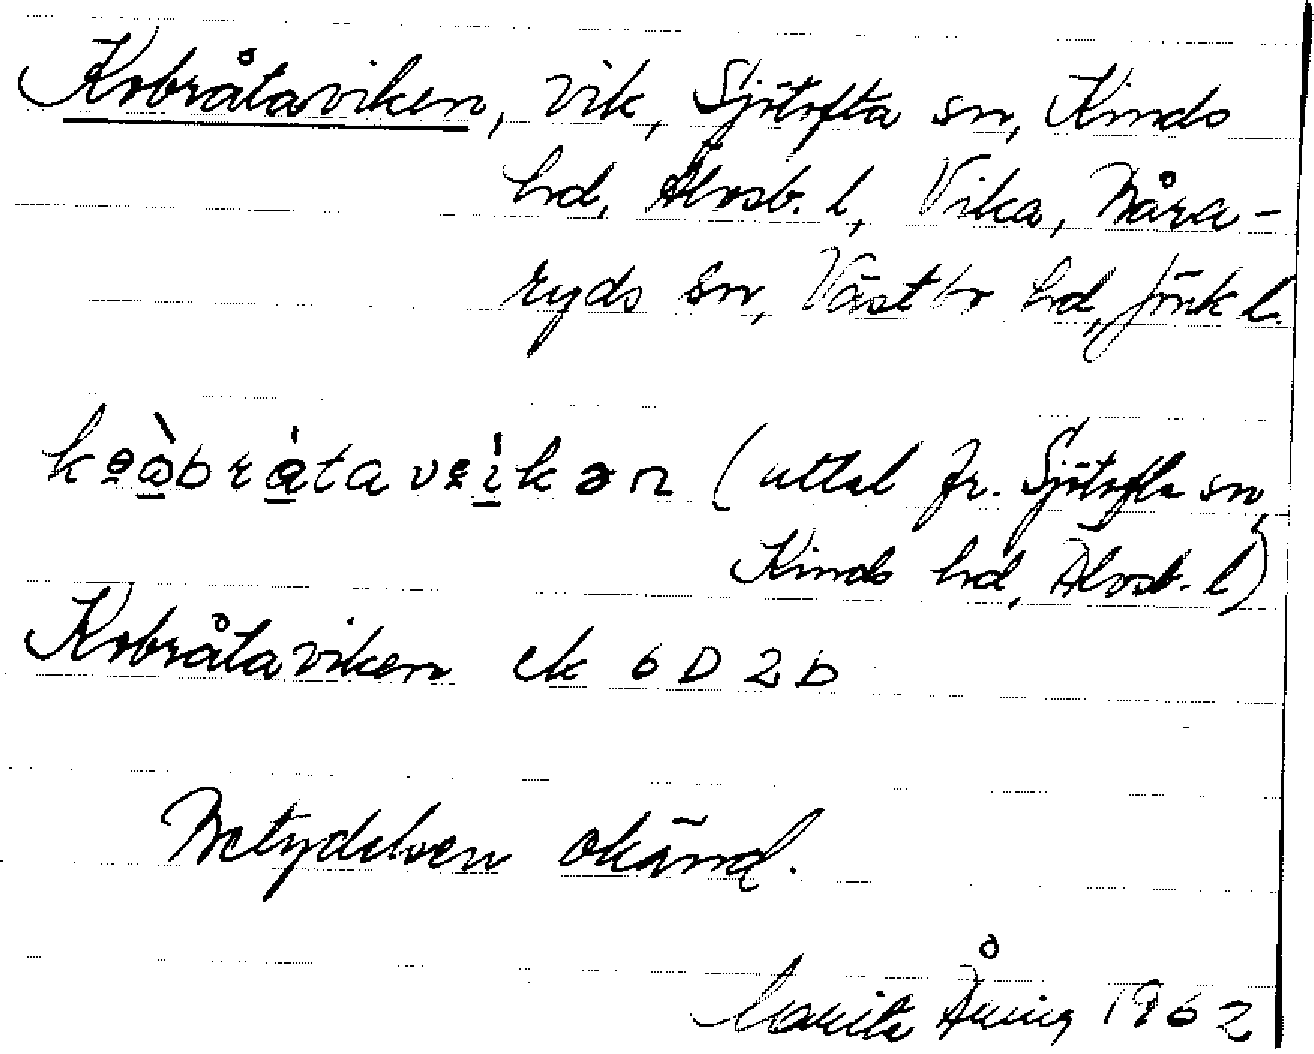 Kobråtaviken, vik, Sjötofta sn, Kinds
hd, Älvsb. l, Vika, Båra-
ryds sn, Västbo hd, Jönk l.
(uttal fr. Sjötofta sn,
Kinds hd, Älvsb. l)
Kobråtaviken ek 6 D 2 b
Betydelsen okänd.
Marita 1962